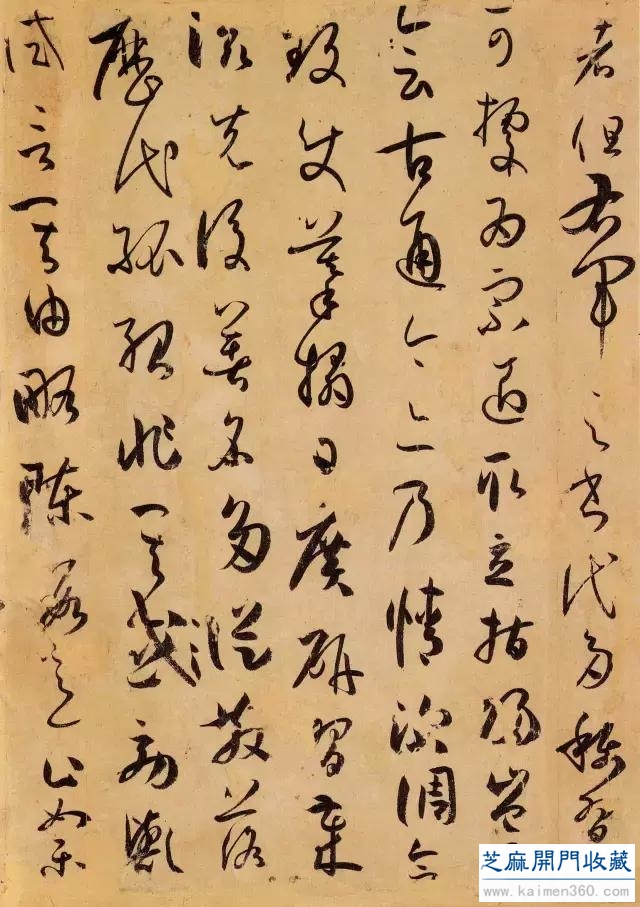 者但右軍之書代多稱習
可據為宗匠取立指歸豈
會古通今亦乃情深調合
致使摹搨日廣研習歲
滋先後著名多從散落
歷代孤紹非其效歟
試言其由略陳數意止如樂
芝麻開門收藏
www.kaimen360.com